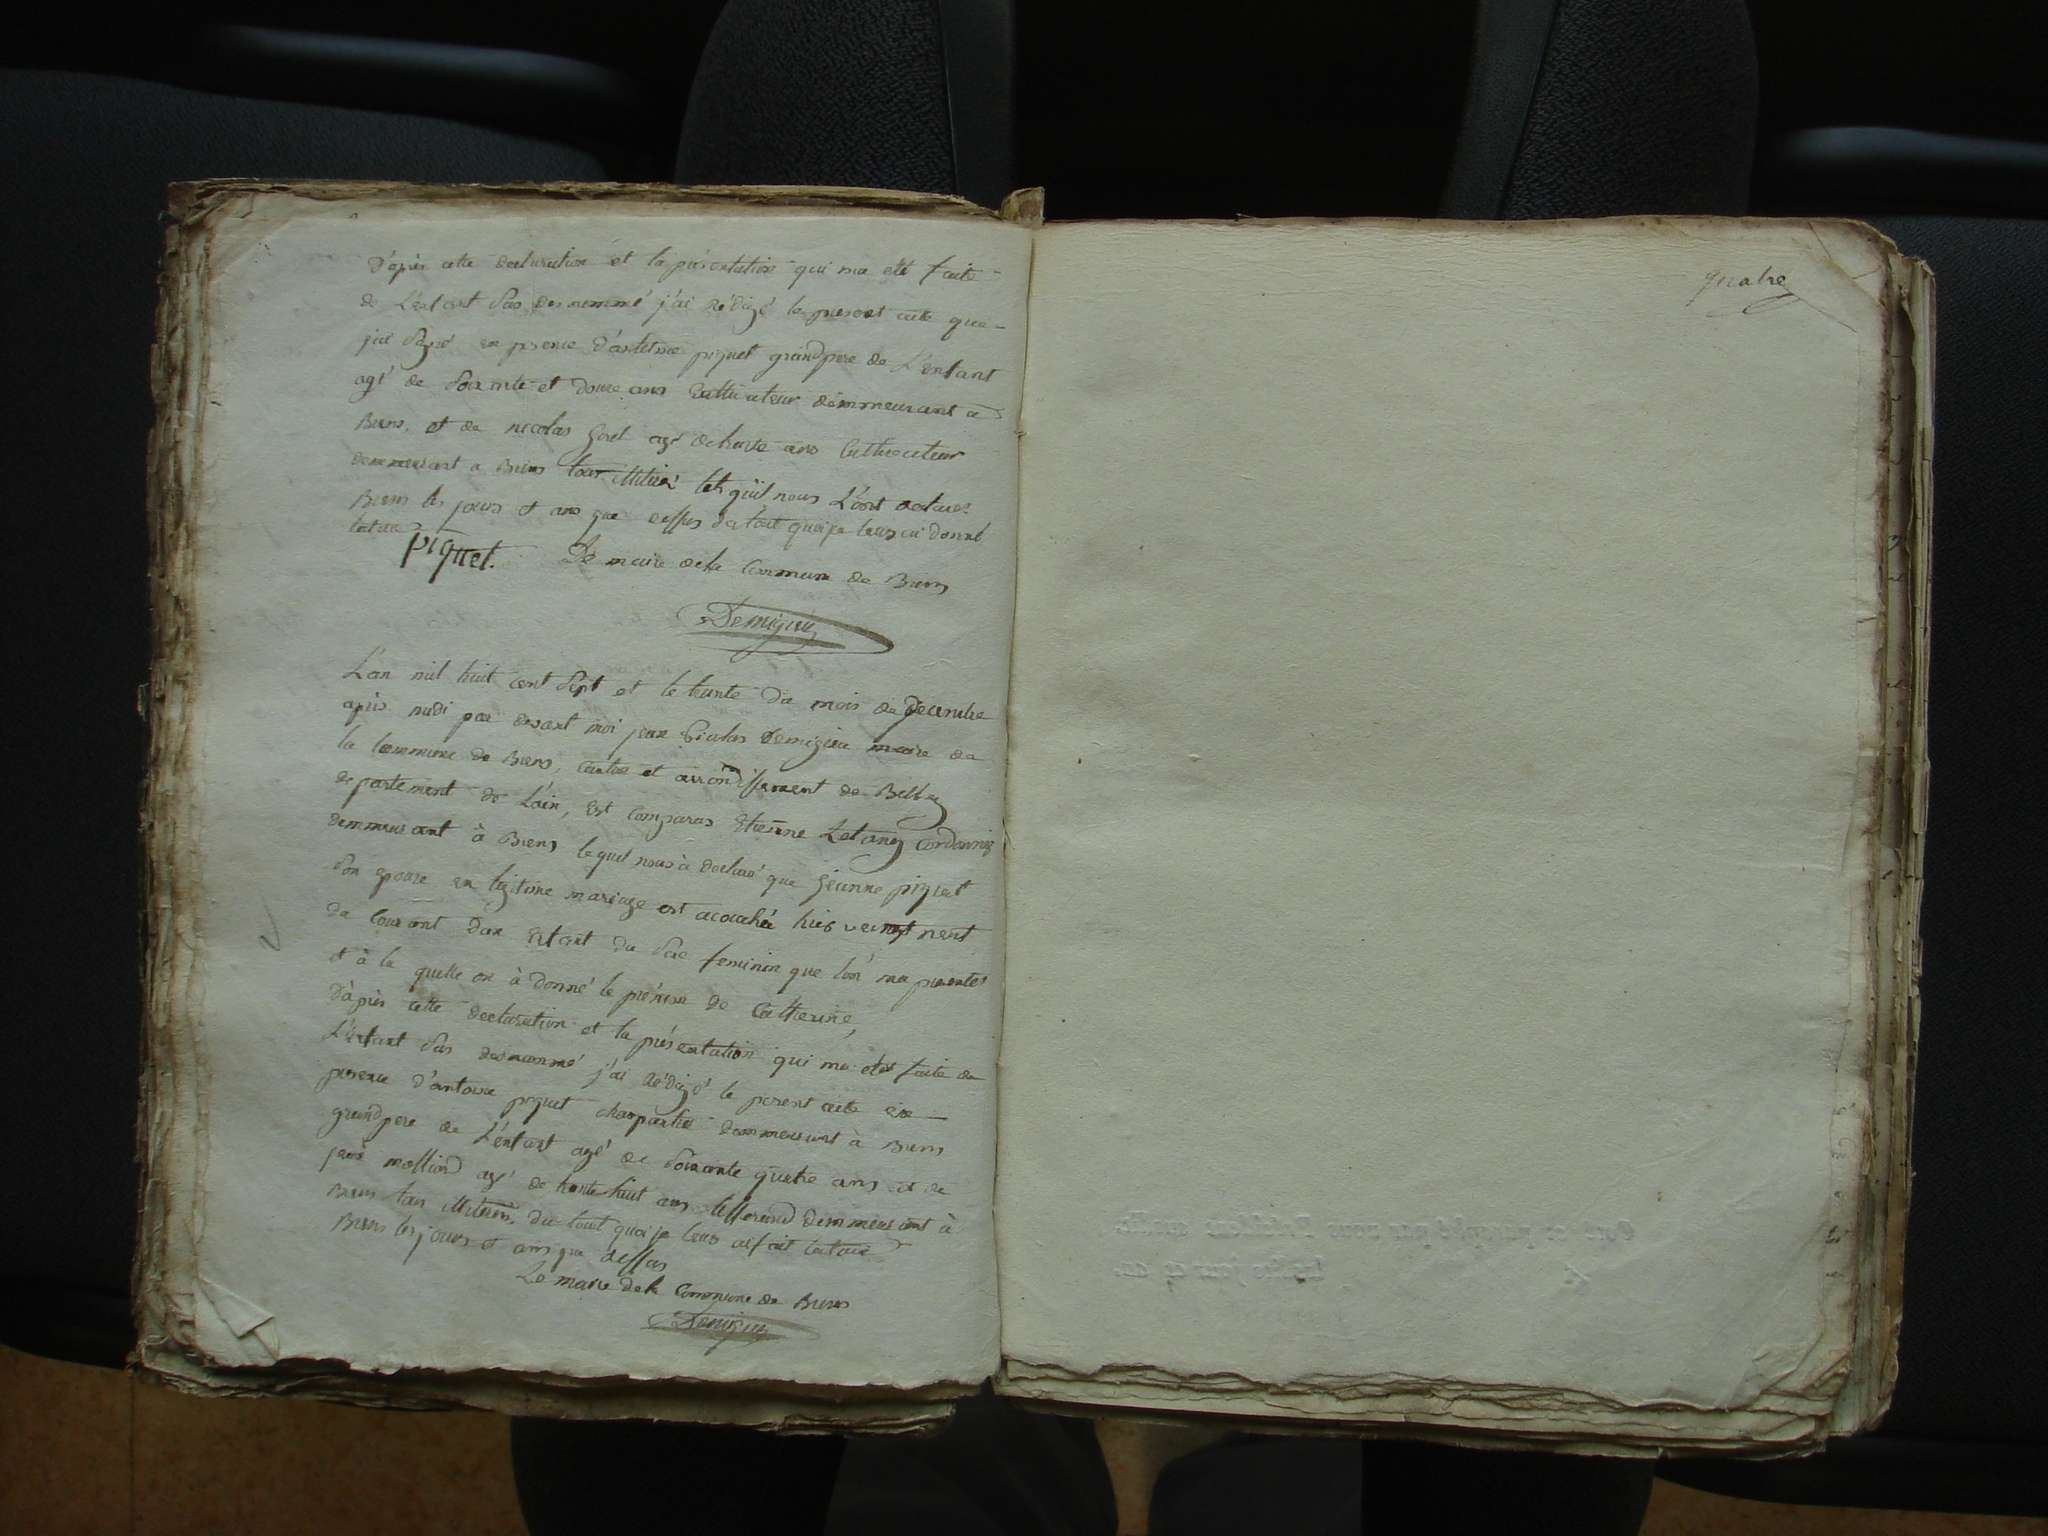 D'après cette declaration et la présentation qui ma été faite
de L'enfant Sus desnommé j'ai rédigé le present acte que
j'ai Signé en presence d'antoine piquet grandpere de L'enfant
agé de Soixante et douze ans Cultivateur demmeurant à
Biens, et de nicolas agé de trente ans Cultivateur
demmeurant a Biens tous illitérés tels qu'il nous L'ont declarés
Biens les jours et ans que dessus de tout quoi je leurs ai donné
lecture
piquet. Le maire de la Commune de Biens
Demigieu
L'an mil huit cent Sept et le trente du mois de Decembre
après midi par devant moi jean Nicolas Demigieu maire de
la Commune de Biens, Canton et arrondissement de Belley
departement de L'ain, est Comparus Etienne Letang Cordonnier
demmeurant à Biens lequel nous à declaré que Jeanne piquet
Son epouse en légitime mariage est acouchée hier veingt neuf
du Courant d'un Enfant du Sexe feminin que l'on ma presentés
et à la quelle on à donné le prénom de Catherine,
D'après cette declaration et la présentation qui ma etés faite de
L'enfant Sus desnommé j'ai rédigé le present acte en
presence d'antoine piquet charpantier demmeurant à Biens
grandpere de L'enfant agé de Soixante quatre ans et de
jean molliond agé de trente huit ans demmeurant à
Biens tous illiterés, du tout quoi je leurs ai fait lecture
Biens les jours et ans que dessus
Le maire de la Commune de Biens
Demigieu
quatre